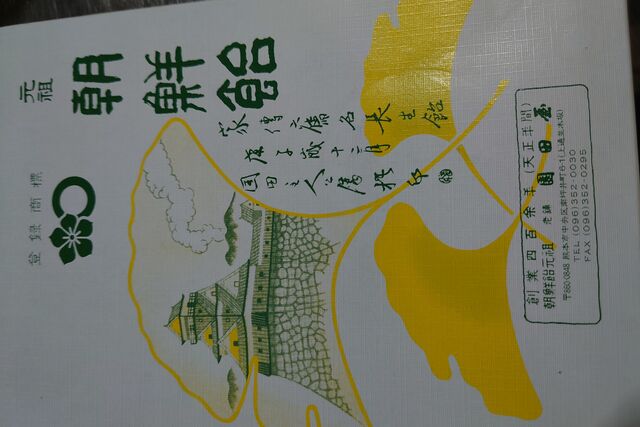 元祖
朝鮮飴
登録商標
家傳舊名長生飴
庚子歳十二月
園田主人
創業四百余年(天正年間)
朝鮮飴元祖 老舗 園田屋
〒860-0848 熊本市中央区南坪井町6-1(上通並木坂)
TEL (096)352-0030
FAX (096)352-0295